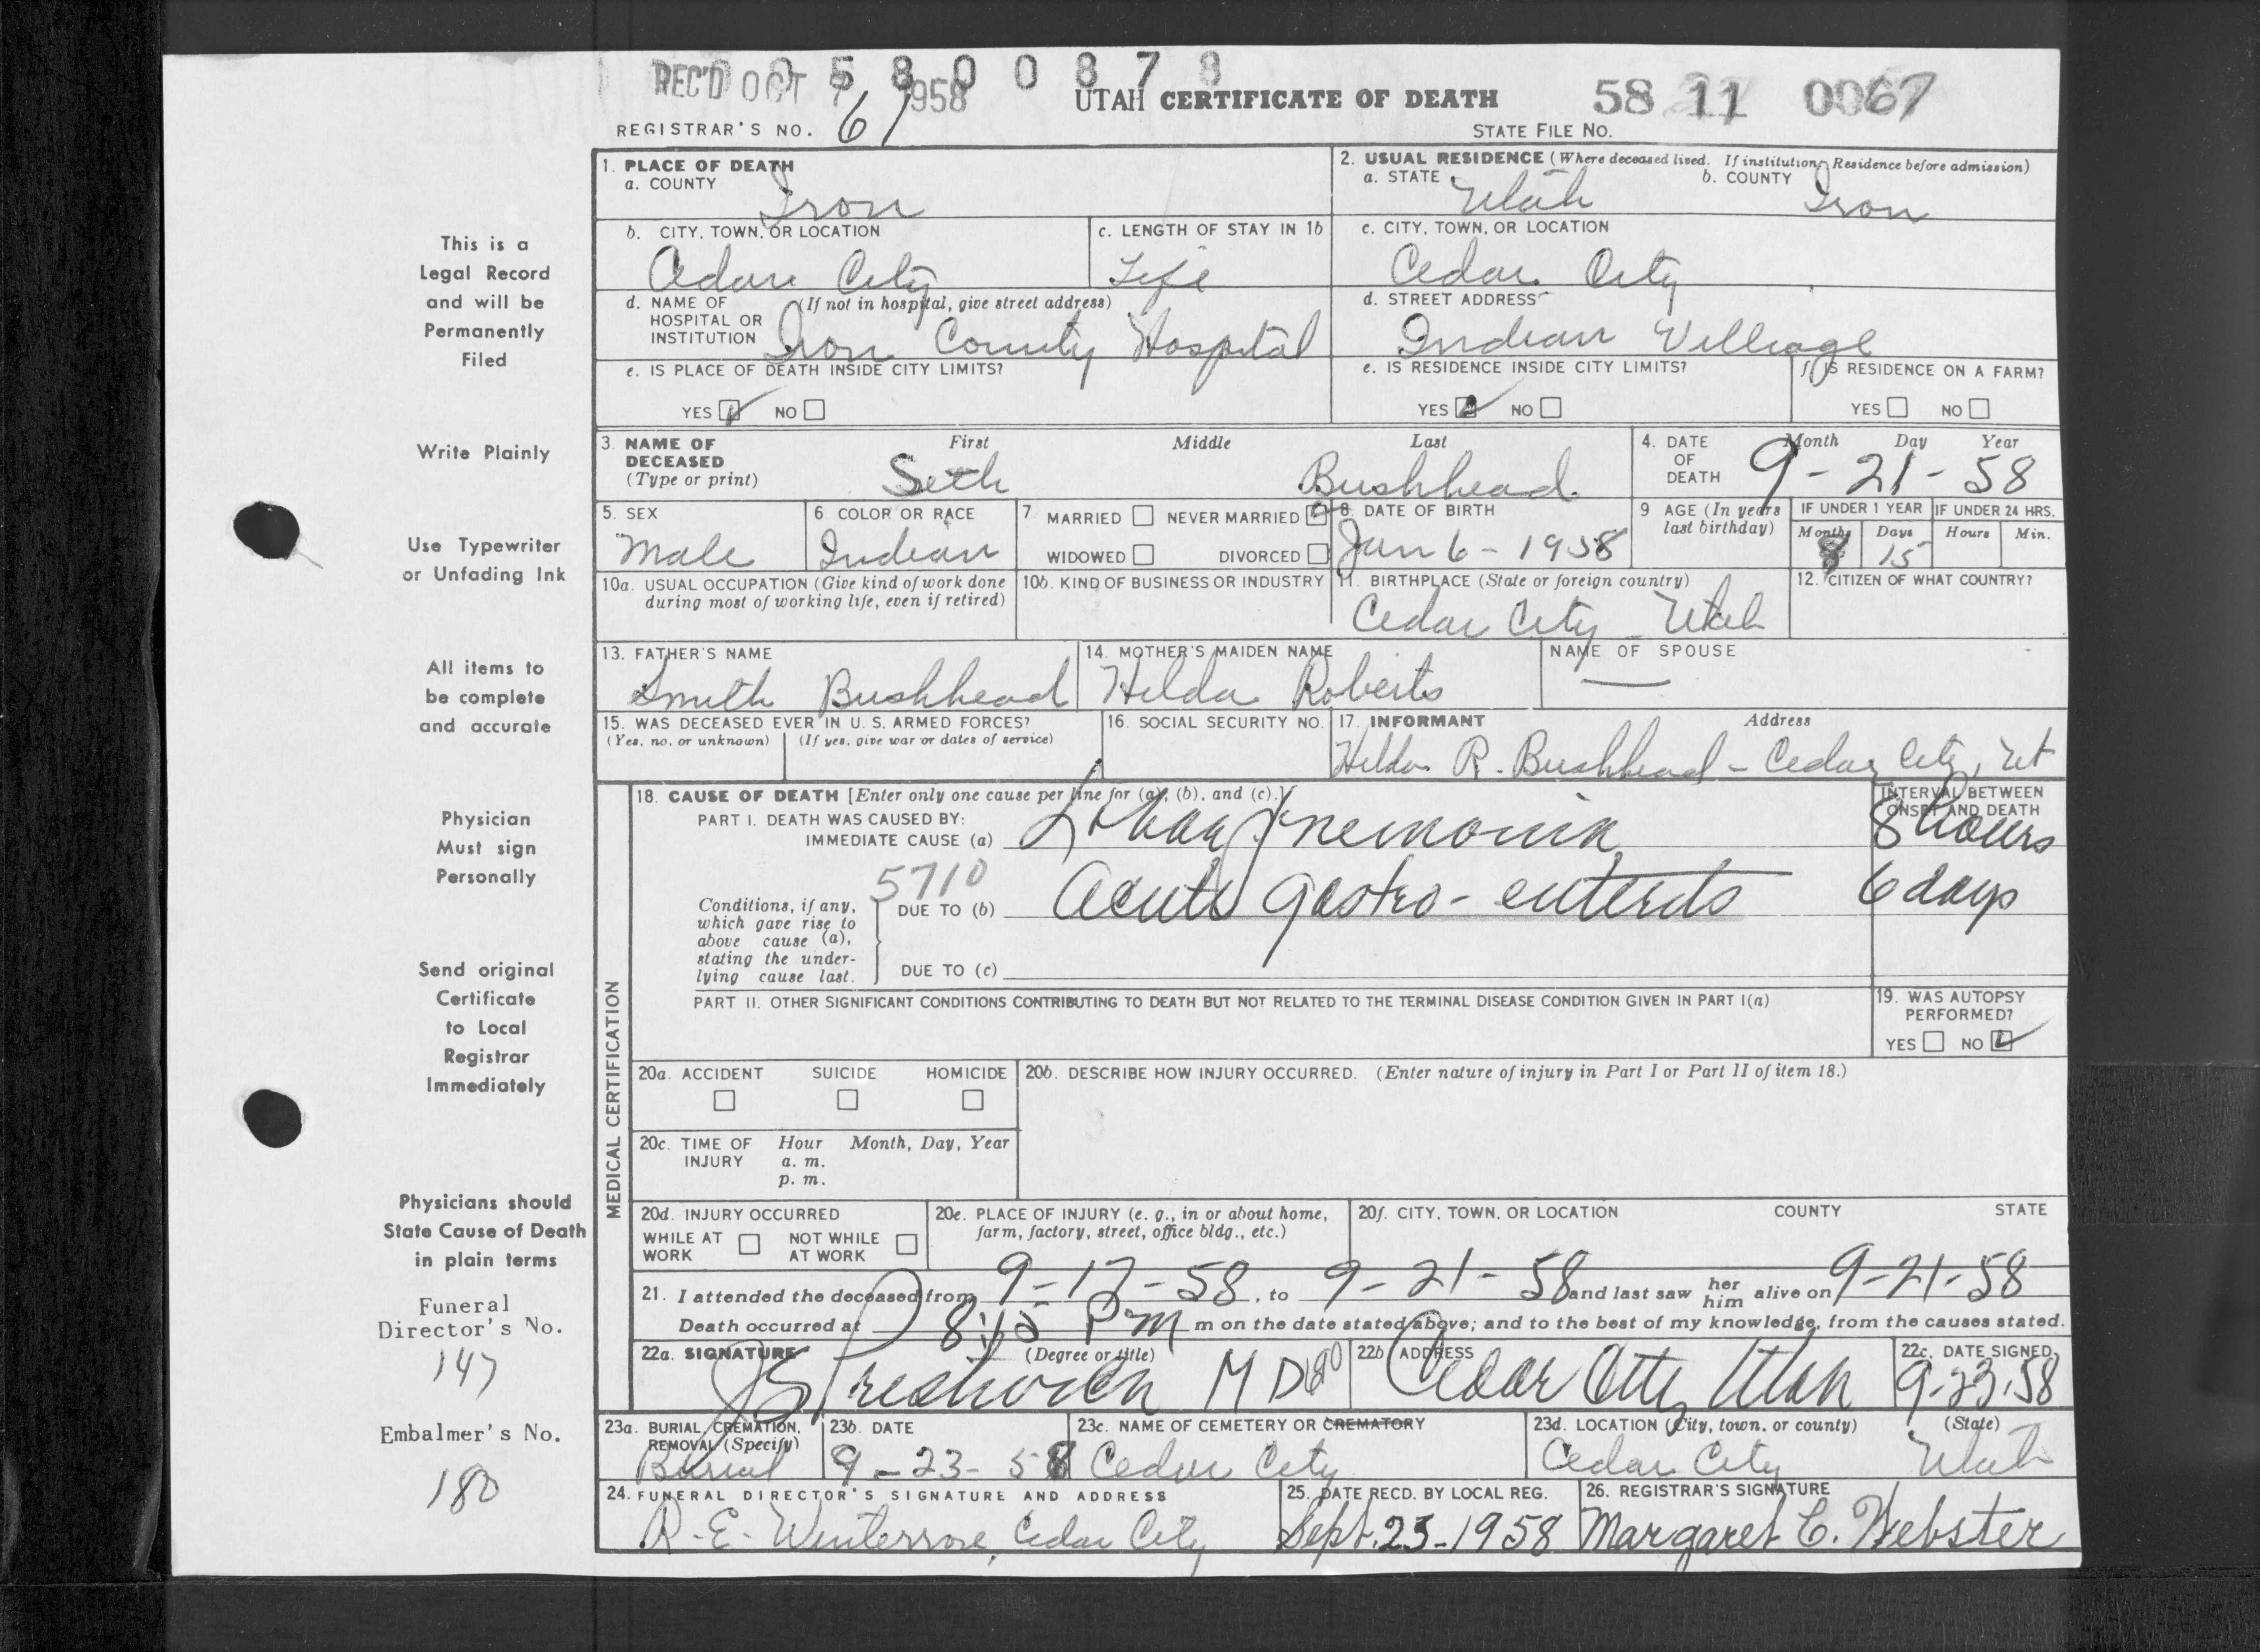 REC'D OCT 7 1958
0 5 8 0 0 8 7 8
UTAH CERTIFICATE OF DEATH
58 11 0067
REGISTRAR'S NO. 61
STATE FILE NO.
1. PLACE OF DEATH
a. COUNTY
Iron
2. USUAL RESIDENCE (Where deceased lived. If institution, Residence before admission)
a. STATE Utah b. COUNTY Iron
b. CITY, TOWN, OR LOCATION
Cedar City
c. LENGTH OF STAY IN 1b
Life
c. CITY, TOWN, OR LOCATION
Cedar City
d. NAME OF HOSPITAL OR INSTITUTION (If not in hospital, give street address)
Iron County Hospital
d. STREET ADDRESS
Indian Village
e. IS PLACE OF DEATH INSIDE CITY LIMITS?
YES NO
e. IS RESIDENCE INSIDE CITY LIMITS?
YES NO
f. IS RESIDENCE ON A FARM?
YES NO
3. NAME OF DECEASED (Type or print)
First Middle Last
Seth Bushhead
4. DATE OF DEATH
Month Day Year
9-21-58
5. SEX
Male
6 COLOR OR RACE
Indian
7 MARRIED NEVER MARRIED
WIDOWED DIVORCED
8. DATE OF BIRTH
Jan 6 - 1958
9 AGE (In years last birthday)
IF UNDER 1 YEAR IF UNDER 24 HRS.
Months Days Hours Min.
8 15
10a. USUAL OCCUPATION (Give kind of work done during most of working life, even if retired)
10b. KIND OF BUSINESS OR INDUSTRY
11. BIRTHPLACE (State or foreign country)
Cedar City - Utah
12. CITIZEN OF WHAT COUNTRY?
13. FATHER'S NAME
Smith Bushhead
14. MOTHER'S MAIDEN NAME
Hilda Roberts
NAME OF SPOUSE
—
15. WAS DECEASED EVER IN U. S. ARMED FORCES?
(Yes, no, or unknown) (If yes, give war or dates of service)
16. SOCIAL SECURITY NO.
17. INFORMANT Address
Hilda R. Bushhead - Cedar City, Ut
18. CAUSE OF DEATH [Enter only one cause per line for (a), (b), and (c).]
PART I. DEATH WAS CAUSED BY:
IMMEDIATE CAUSE (a) Lobar pnemonia
INTERVAL BETWEEN ONSET AND DEATH
8 hours
5710
Conditions, if any, which gave rise to above cause (a), stating the underlying cause last.
DUE TO (b) acute gastro-enterits
6 days
DUE TO (c)
PART II. OTHER SIGNIFICANT CONDITIONS CONTRIBUTING TO DEATH BUT NOT RELATED TO THE TERMINAL DISEASE CONDITION GIVEN IN PART I(a)
19. WAS AUTOPSY PERFORMED?
YES NO
MEDICAL CERTIFICATION
20a. ACCIDENT SUICIDE HOMICIDE
20b. DESCRIBE HOW INJURY OCCURRED. (Enter nature of injury in Part I or Part II of item 18.)
20c. TIME OF INJURY Hour Month, Day, Year
a. m.
p. m.
20d. INJURY OCCURRED
WHILE AT WORK NOT WHILE AT WORK
20e. PLACE OF INJURY (e. g., in or about home, farm, factory, street, office bldg., etc.)
20f. CITY, TOWN, OR LOCATION COUNTY STATE
21. I attended the deceased from 9-17-58, to 9-21-58 and last saw her him alive on 9-21-58
Death occurred at 8:15 Pm m on the date stated above; and to the best of my knowledge, from the causes stated.
22a. SIGNATURE (Degree or title)
M D
22b ADDRESS
Cedar City Utah
22c. DATE SIGNED
9-23-58
23a. BURIAL, CREMATION, REMOVAL (Specify)
Burial
23b. DATE
9-23-58
23c. NAME OF CEMETERY OR CREMATORY
Cedar City
23d. LOCATION (City, town, or county) (State)
Cedar City Utah
24. FUNERAL DIRECTOR'S SIGNATURE AND ADDRESS
R. E. Winterrose, Cedar City
25. DATE RECD. BY LOCAL REG.
Sept. 23-1958
26. REGISTRAR'S SIGNATURE
Margaret C. Webster
This is a
Legal Record
and will be
Permanently
Filed
Write Plainly
Use Typewriter
or Unfading Ink
All items to
be complete
and accurate
Physician
Must sign
Personally
Send original
Certificate
to Local
Registrar
Immediately
Physicians should
State Cause of Death
in plain terms
Funeral
Director's No.
147
Embalmer's No.
180